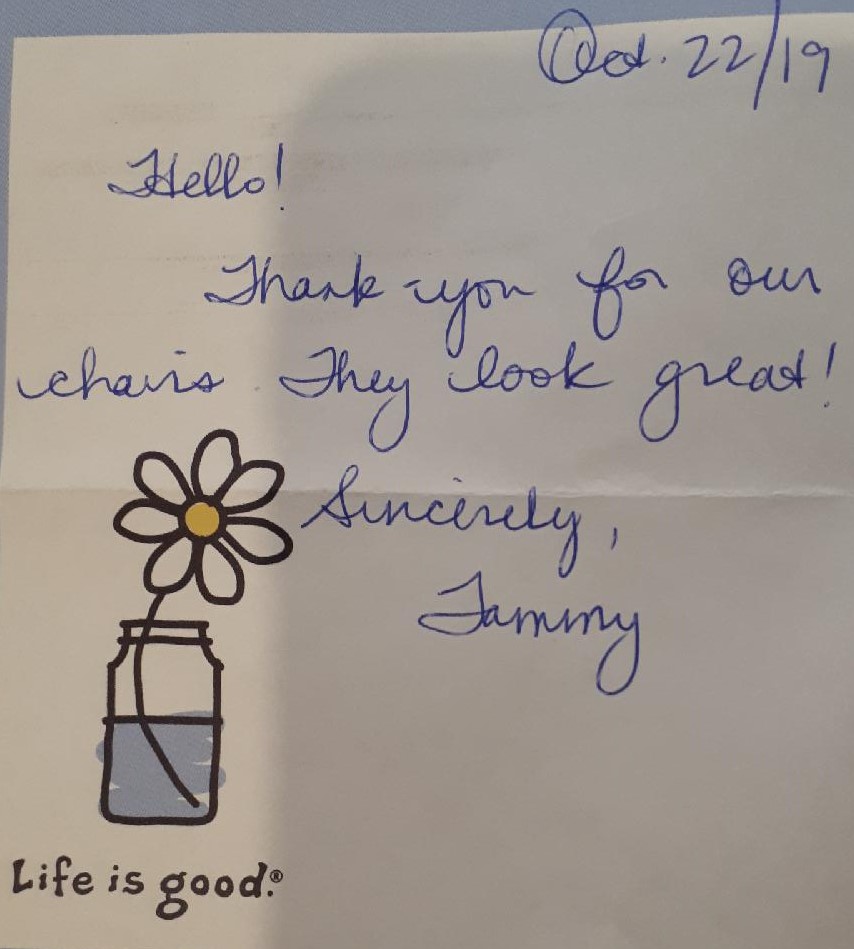 Oct. 22/19
Hello!
Thank-you for our
chairs. They look great!
Sincerely,
Tammy
Life is good.®